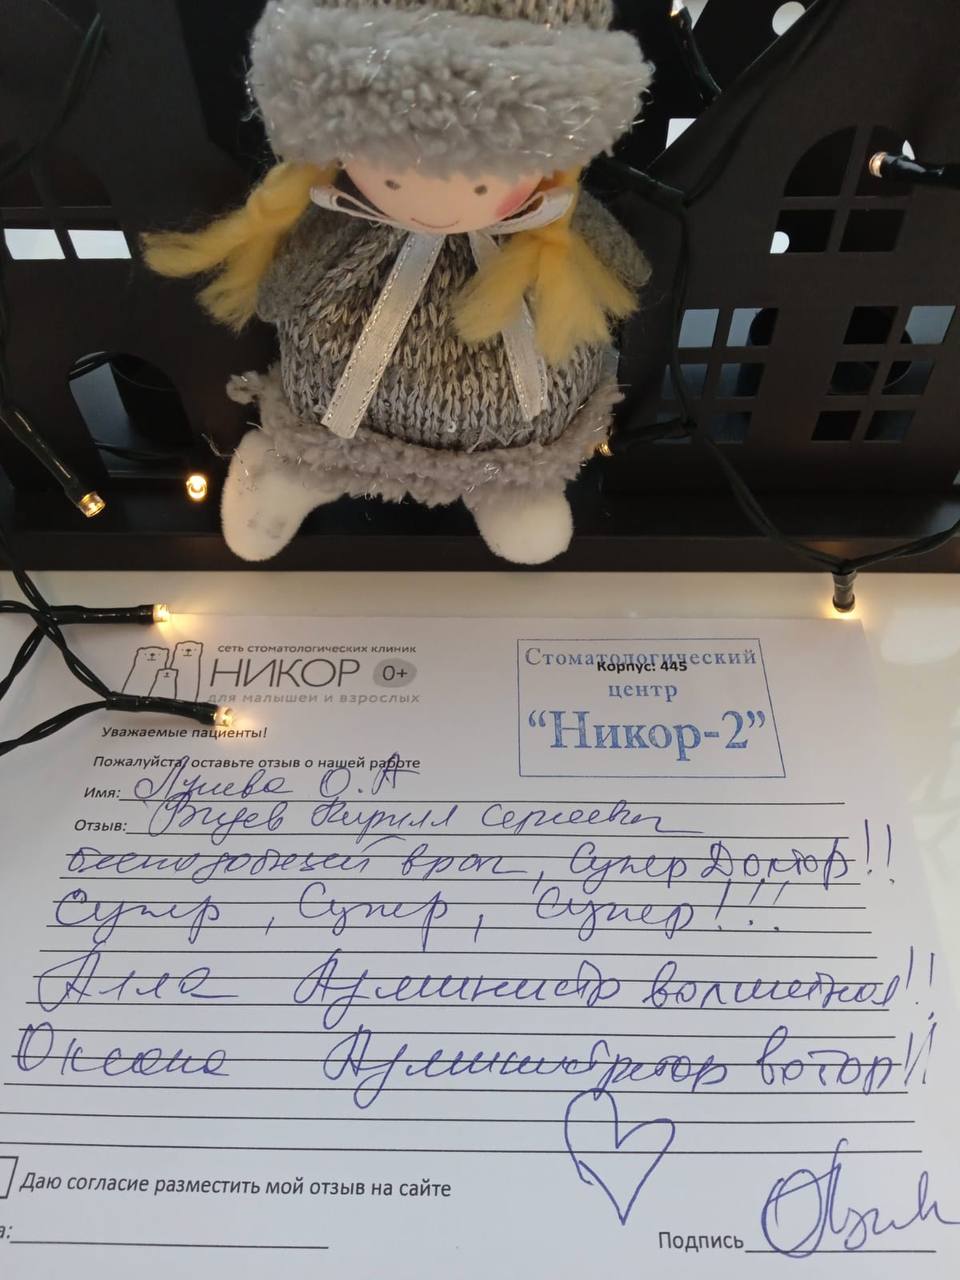 сеть стоматологических клиник
НИКОР 0+
для малышей и взрослых
Стоматологический
Корпус: 445
центр
“Никор-2”
Уважаемые пациенты!
Пожалуйста, оставьте отзыв о нашей работе
Имя: О.А
Отзыв: Кирилл Сергеевич
бесподобный врач, Супер Доктор!!
Супер, Супер, Супер!!!
Алла Администр волшебная!!
Оксана Администратор!!
Даю согласие разместить мой отзыв на сайте
Подпись